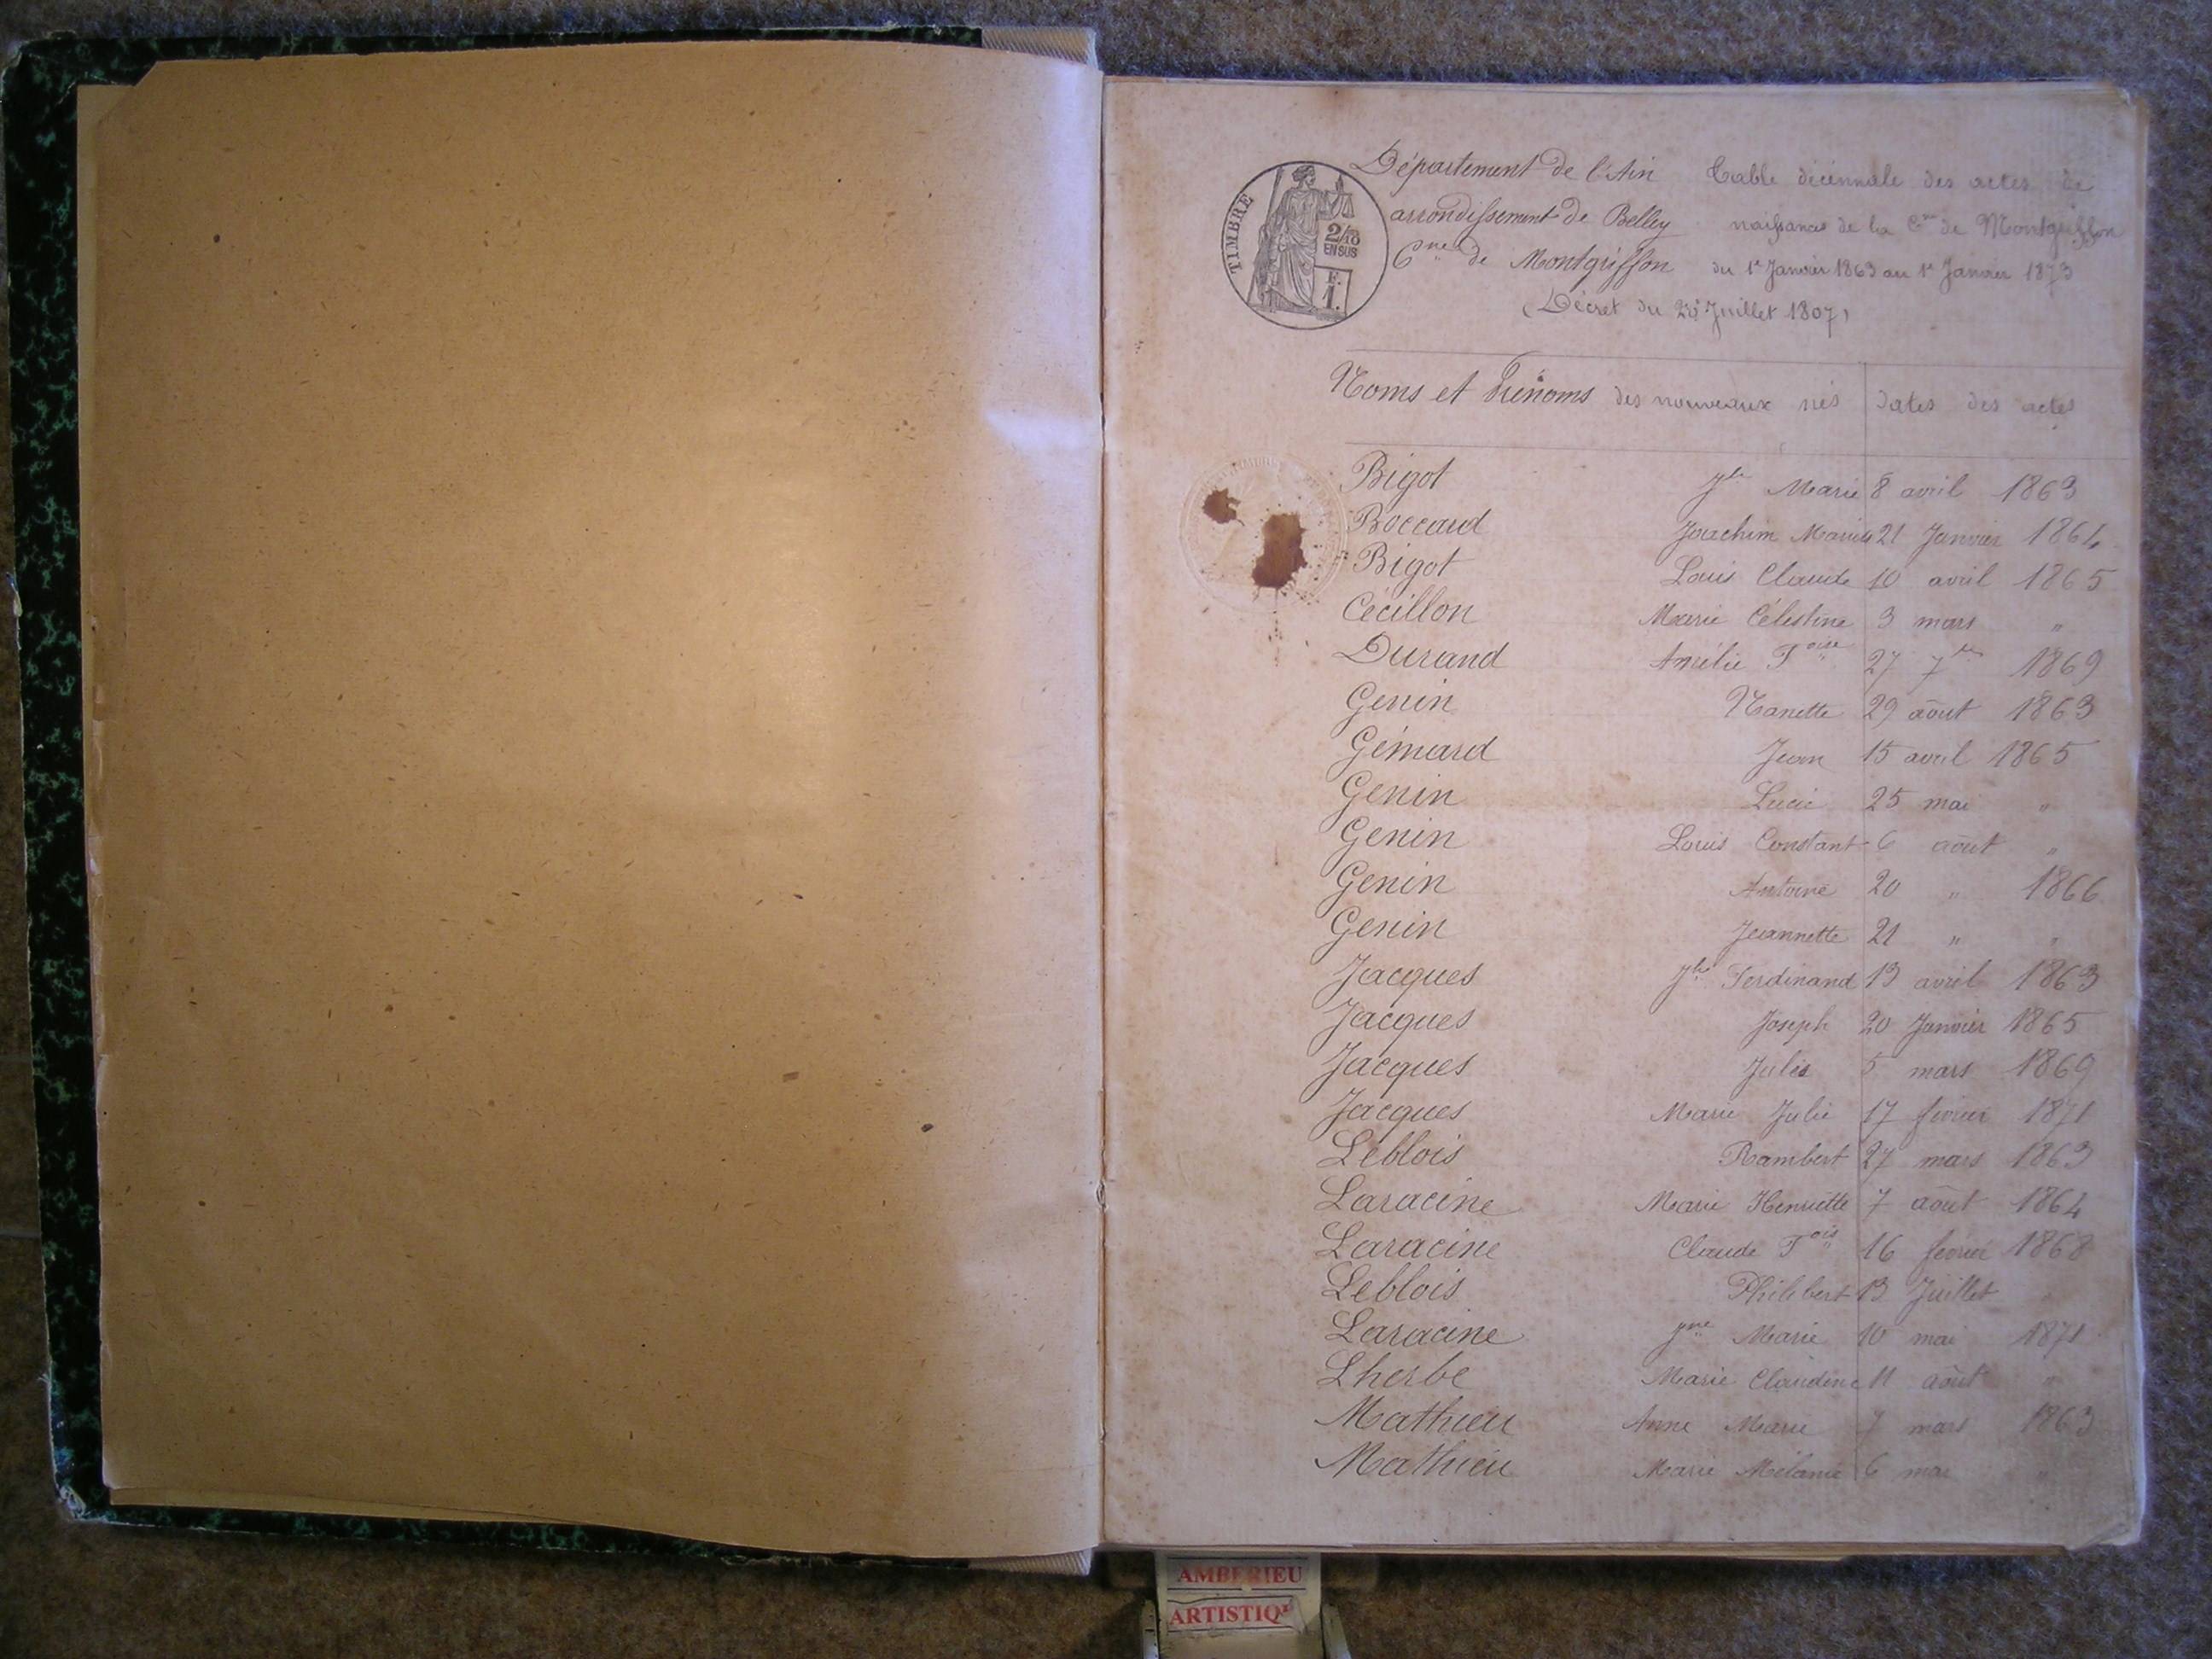 TIMBRE
2/10
EN SUS
F.
1.
Département de l'Ain
arrondissement de Belley
Cne de Montgriffon
Table décennale des actes de
naissances de la Cne de Montgriffon
du 1er Janvier 1863 au 1er Janvier 1873
(Décret du 20 Juillet 1807)
Noms et Prénoms des nouveaux nés dates des actes
Bigot Jh Marie 8 avril 1863
Boccard Joachim Marius 21 Janvier 1864
Bigot Louis Claude 10 avril 1865
Cécillon Marie Célestine 3 mars "
Durand Amélie Foise 27 7bre 1869
Genin Nanette 29 août 1863
Gémard Jean 15 avril 1865
Genin Lucie 25 mai "
Genin Louis Constant 6 août "
Genin Antoine 20 " 1866
Genin Jeannette 21 " "
Jacques Jh Ferdinand 13 avril 1863
Jacques Joseph 20 Janvier 1865
Jacques Jules 5 mars 1869
Jacques Marie Julie 17 fevrier 1871
Leblois Rambert 27 mars 1863
Laracine Marie Henriette 7 août 1864
Laracine Claude Fois 16 fevrier 1868
Leblois Philibert 13 Juillet
Laracine Jne Marie 10 mai 1871
Lherbe Marie Claudine 11 août "
Mathieu Anne Marie 7 mars 1863
Mathieu Marie Mélanie 6 mai "
AMBERIEU
ARTISTIQ